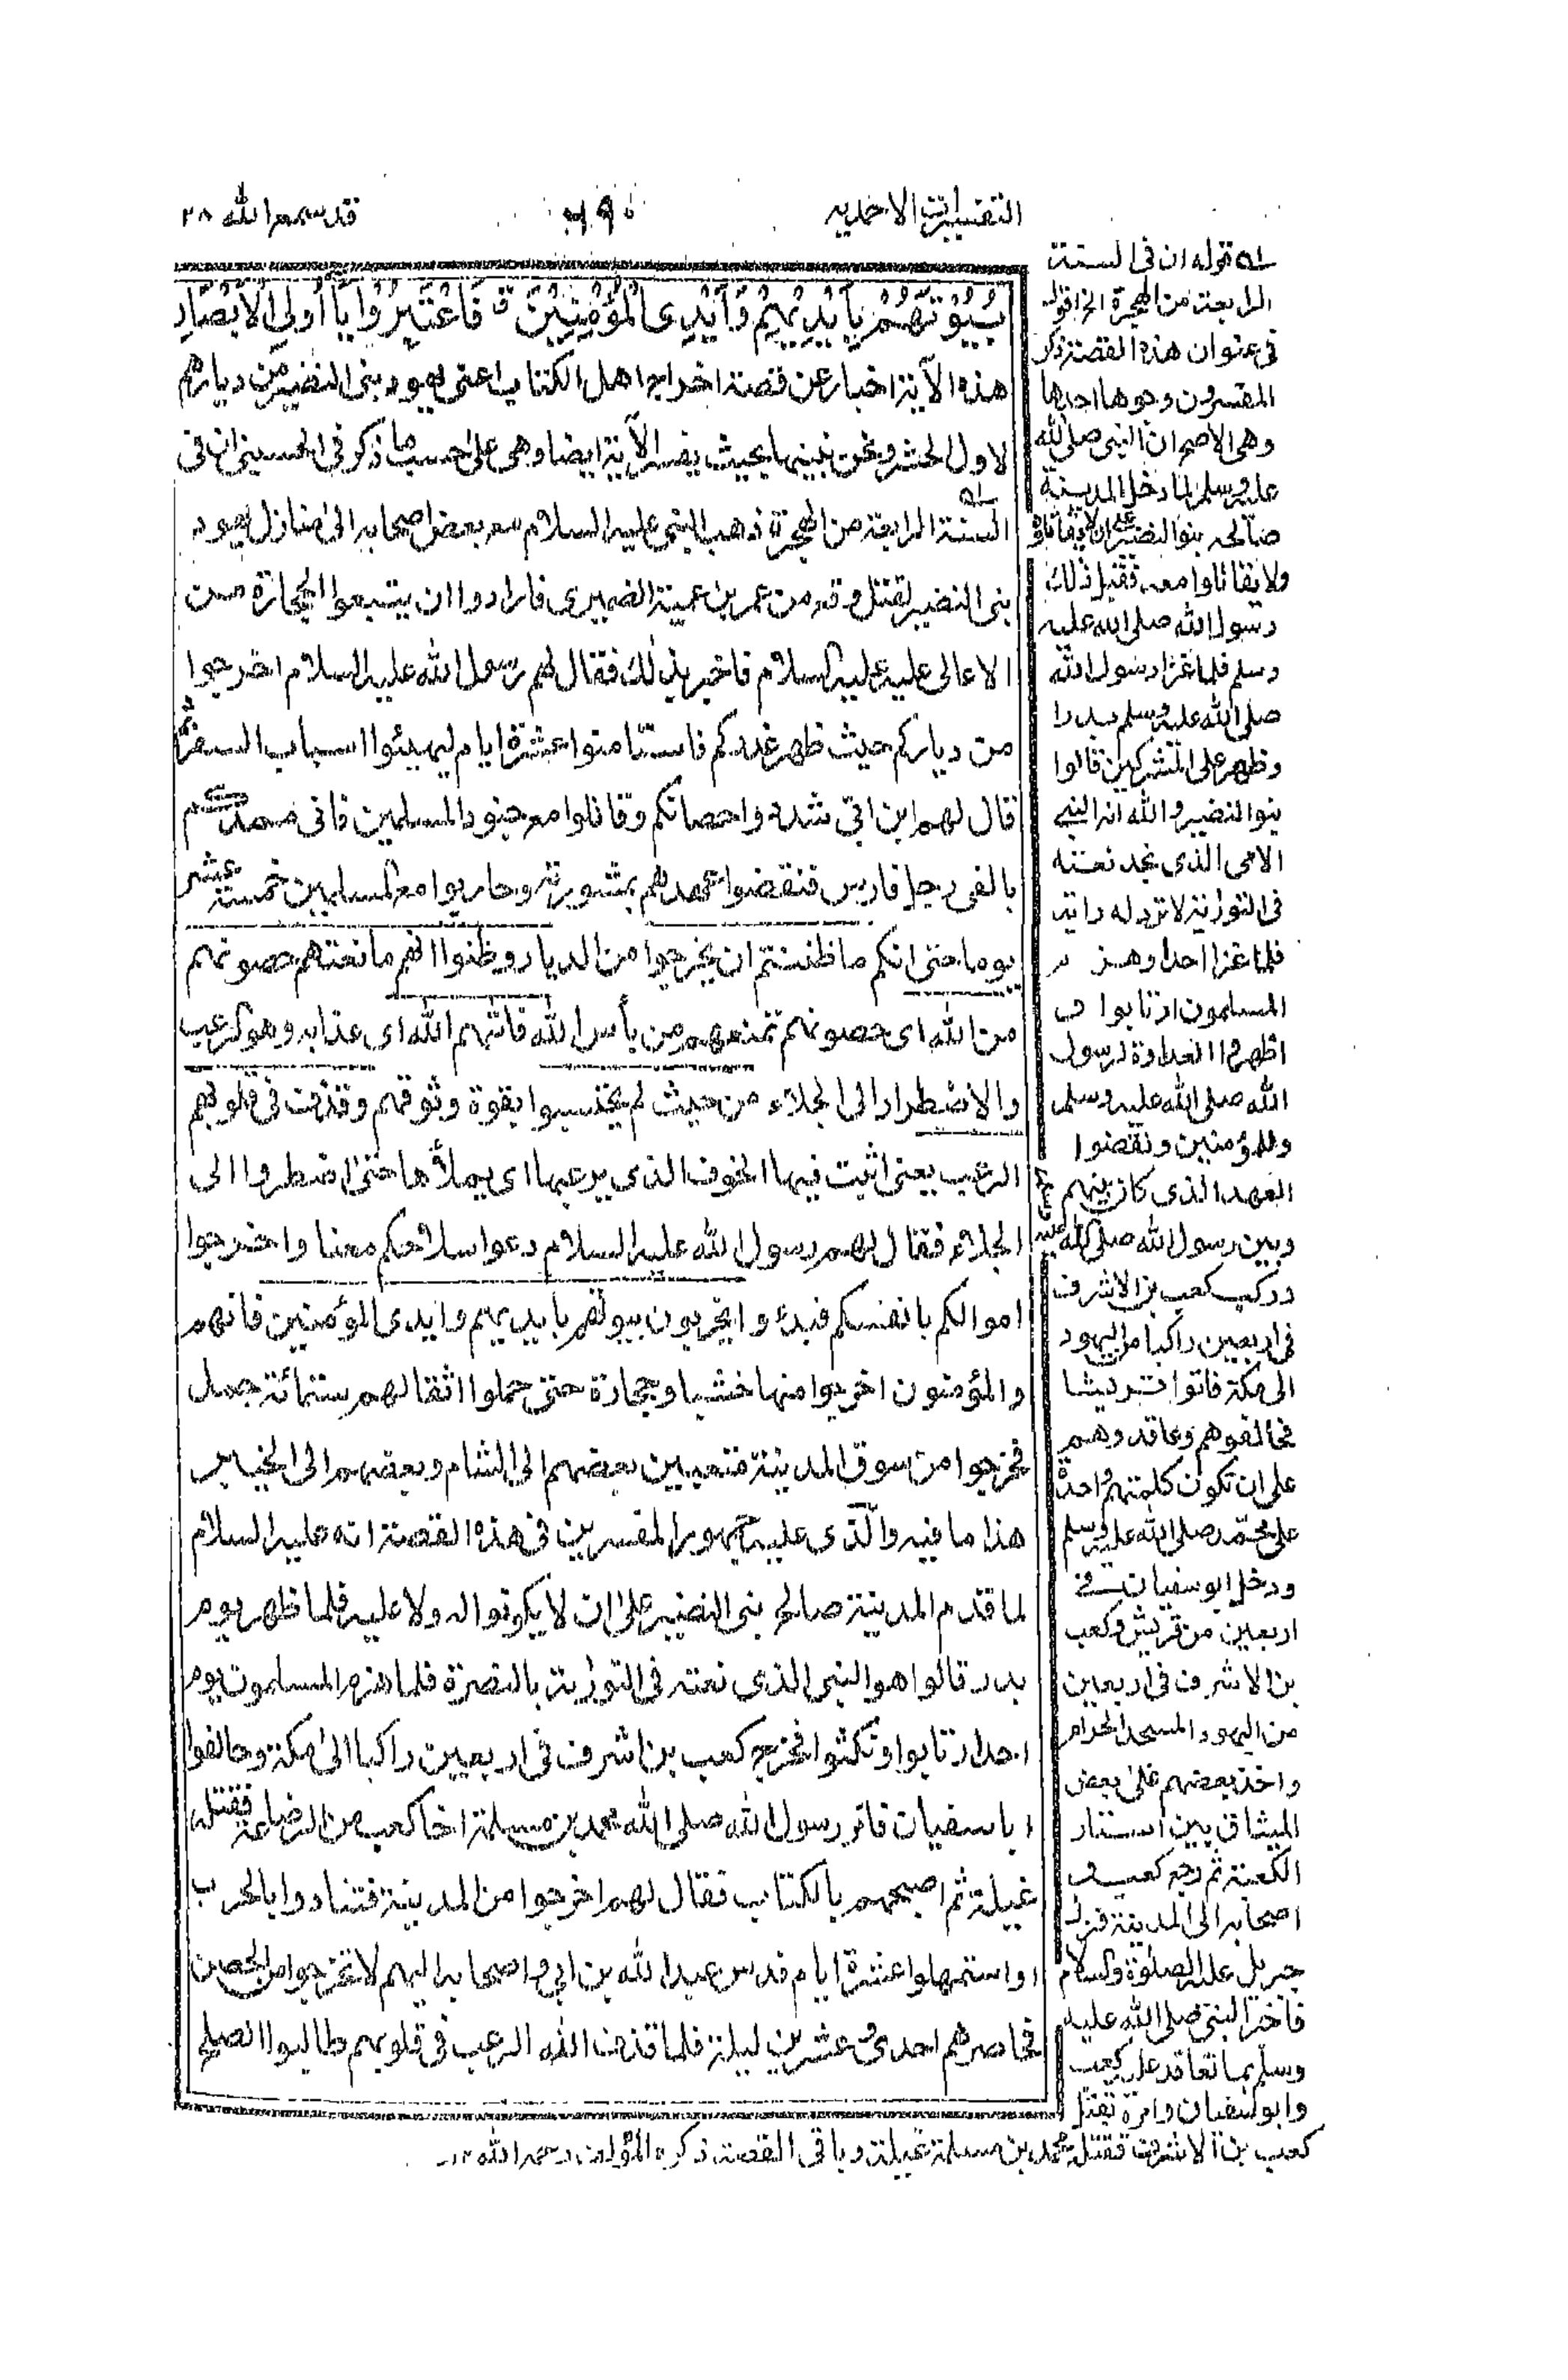 التفسيرات الاحمديه
٦٩٠
قد سمع الله ٢٨
بُيُوْتَهُمْ بِاَيْدِيْهِمْ وَاَيْدِى الْمُؤْمِنِيْنَ فَاعْتَبِرُوْا يٰاُولِى الْاَبْصَارِ
هذه الآية اخبار عن قصة اخراج اهل الكتاب اعنى يهود بنى النضير من ديارهم
لاول الحشر ونحن نبينها بحيث يفسر الآية ايضا وهى على حسب ما ذكر فى الحسينى ان فى
السنة الرابعة من الهجرة ذهب النبى عليه السلام مع بعض اصحابه الى منازل يهود
بنى النضير لقتل وقع من عمر بن عمية الضميرى فارادوا ان يتبعوا الحجارة من
الاعالى عليه عليه السلام فاخبر بذلك فقال لهم رسول الله عليه السلام اخرجوا
من دياركم حيث ظهر غدركم فاستامنوا عشرة ايام ليهيئوا اسباب السفر ثم
قال لهم ابن ابىّ شدوا حصانكم وقاتلوا مع جنود المسلمين فانى ممدكم
بالفى رجل فارس فنقضوا عهدهم بمشورته وحاربوا مع المسلمين خمسة عشر
يوما حتى انكم ما ظننتم ان يخرجوا من الديار وظنوا انهم مانعتهم حصونهم
من الله اى حصونهم تمنعهم من بأس الله فاتهم الله اى عذابه وهو الرعب
والاضطرار الى الجلاء من حيث لم يحتسبوا بقوة وثوقهم وقذف فى قلوبهم
الرعب يعنى اثبت فيها الخوف الذى يرعبها اى يملأها حتى اضطروا الى
الجلاء فقال لهم رسول الله عليه السلام دعوا سلاحكم معنا واخرجوا
اموالكم بانفسكم فبدءوا يخربون بيوتهم بايديهم وايدى المؤمنين فانهم
والمؤمنون اخربوا منها خشبا وحجارة حتى حملوا اثقالهم ستمائة جمل
فخرجوا من سوق المدينة متعيبين بعضهم الى الشام وبعضهم الى الخيابر
هذا ما فيه والّذى عليه جمهور المفسرين فى هذه القصة انه عليه السلام
لما قدم المدينة صالح بنى النضير على ان لا يكونوا له ولا عليه فلما ظهر يوم
بدر قالوا هو النبى الذى نعته فى التورية بالنصرة فلما هزم المسلمون يوم
احد ارتابوا ونكثوا فخرج كعب بن اشرف فى اربعين راكبا الى مكة وحالفوا
ابا سفيان فامر رسول الله صلى الله محمد بن مسلمة اخا كعب من الرضاعة فقتله
غيلة ثم اصبحهم بالكتاب فقال لهم اخرجوا من المدينة فتنادوا بالحرب
او استمهلوا عشرة ايام فدس عبد الله بن ابى واصحابه اليهم لا تخرجوا من الحصن
فحاصرهم احدى وعشرين ليلة فلما قذف الله الرعب فى قلوبهم طالبوا الصلح
له قوله ان فى السنة
الرابعة من الهجرة الخ اقول
فى عنوان هذه القصة ذكر
المفسرون وجوها احدها
وهى الاصح ان النبى صلى الله
عليه وسلم لما دخل المدينة
صالحه بنو النضير على ان لا يقاتلوه
ولا يقاتلوا معه فقبل ذلك
رسول الله صلى الله عليه
وسلم فلما غزا رسول الله
صلى الله عليه وسلم بدرا
وظهر على المشركين قالوا
بنو النضير والله انه النبى
الامى الذى نجد نعته
فى التورية لا ترد له راية
فلما غزا احدا وهزم
المسلمون ارتابوا و
اظهروا العداوة لرسول
الله صلى الله عليه وسلم
وللمؤمنين ونقضوا
العهد الذى كان بينهم
وبين رسول الله صلى الله عليه وسلم
وركب كعب بن الاشرف
فى اربعين راكبا من اليهود
الى مكة فاتوا قريشا
فحالفوهم وعاقدوهم
على ان تكون كلمتهم واحدة
على محمّد صلى الله عليه وسلم
ودخل ابو سفيان فى
اربعين من قريش وكعب
بن الاشرف فى اربعين
من اليهود المسجد الحرام
واخذ بعضهم على بعض
الميثاق بين استار
الكعبة ثم رجع كعب و
اصحابه الى المدينة فنزل
جبريل عليه الصلوة والسلام
فاخبر النبى صلى الله عليه
وسلم بما تعاقد عليه كعب
وابو سفيان وامره بقتل
كعب بن الاشرف فقتله محمد بن مسلمة غيلة وباقى القصة ذكره المؤلف رحمه الله ١٢